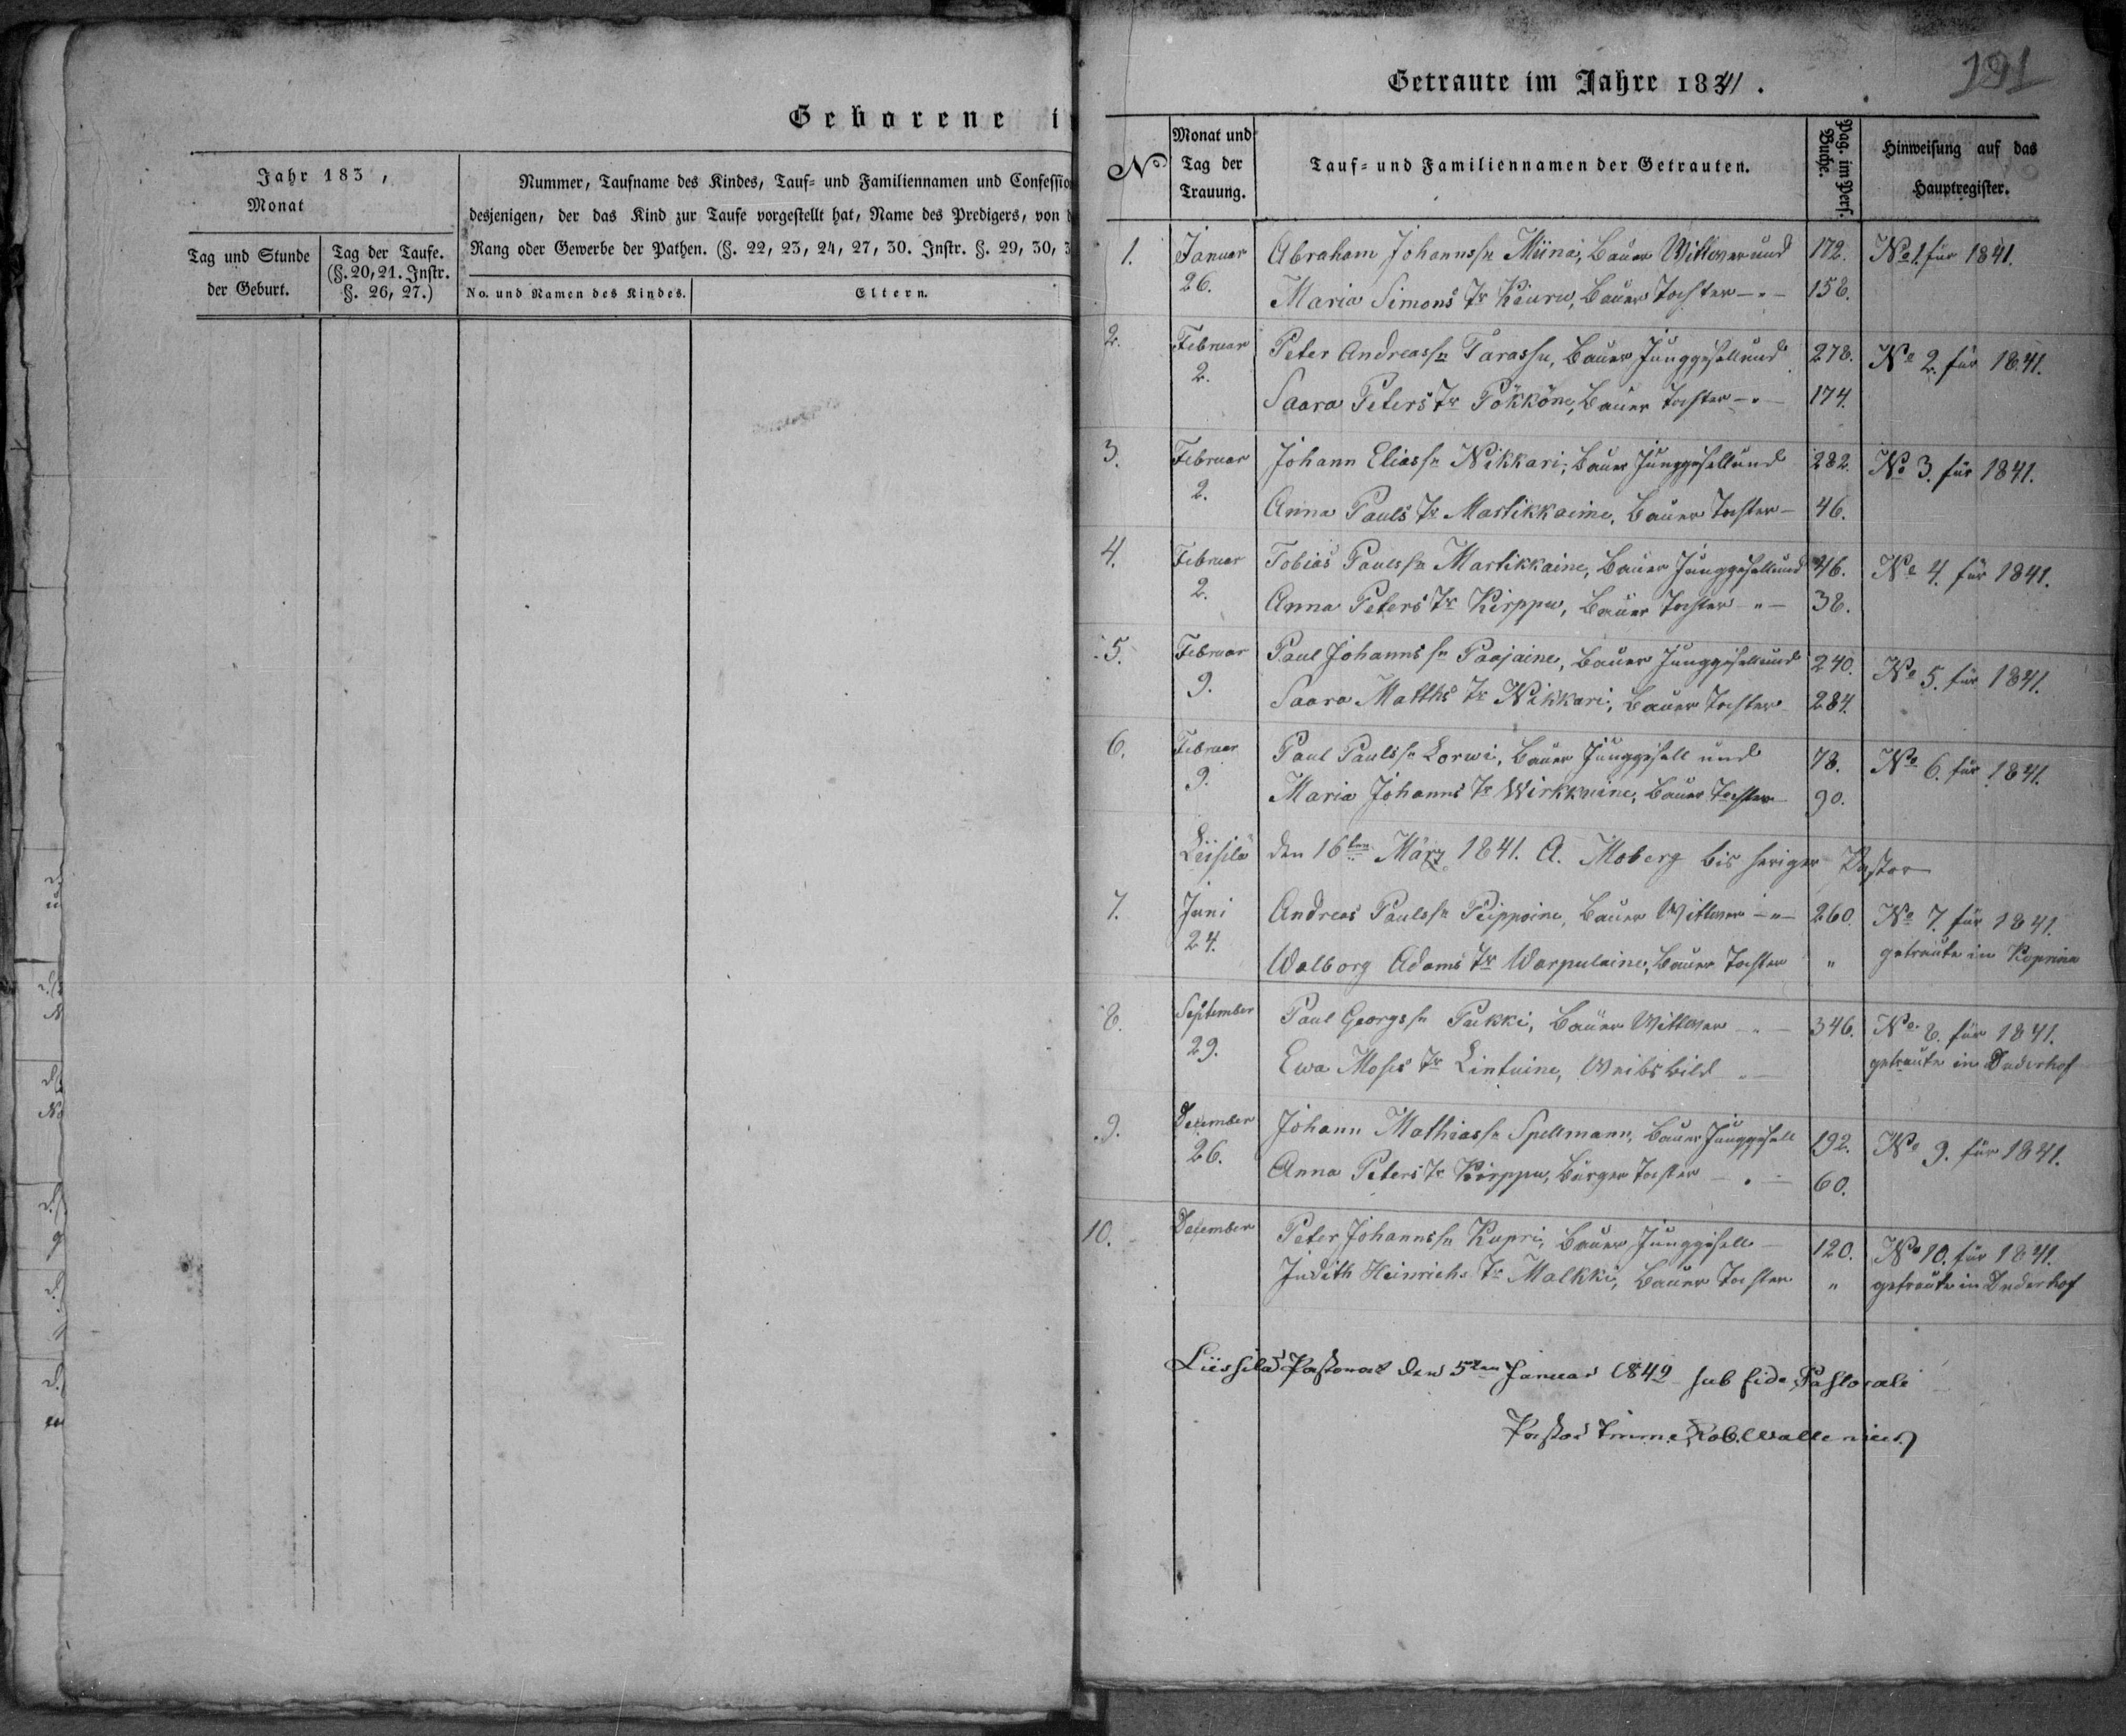 Geborene i
Jahr 183 ,
Monat
Tag und Stunde
der Geburt.
Tag der Taufe.
(§. 20, 21. Instr.
§. 26, 27.)
Nummer, Taufname des Kindes, Tauf- und Familiennamen und Confessio
desjenigen, der das Kind zur Taufe vorgestellt hat, Name des Predigers, von
Rang oder Gewerbe der Pathen. (§. 22, 23, 24, 27, 30. Instr. §. 29, 30, 3
No. und Namen des Kindes.
Eltern.
191
Getraute im Jahre 1841.
No
Monat und
Tag der
Trauung.
Tauf- und Familiennamen der Getrauten.
Pag. im Pers.
Buche.
Hinweisung auf das
Hauptregister.
1. Januar Abraham Johannssn Miina, Bauer Wittwer und 172. No 1. für 1841.
26. Maria Simons Tr Kiuru, Bauer Tochter -„- 158.
2. Februar Peter Andreassn Tarassu, Bauer Junggesell und 278. No 2. für 1841.
2. Saara Peters Tr Pökköne, Bauer Tochter -„- 174.
3. Februar Johann Eliassn Nikkari, Bauer Junggesell und 282. No 3. für 1841.
2. Anna Pauls Tr Martikkaine, Bauer Tochter - 46.
4. Februar Tobias Paulssn Martikkaine, Bauer Junggesell und 46. No 4. für 1841.
2. Anna Peters Tr Kirppu, Bauer Tochter -„- 38.
5. Februar Paul Johannssn Paajaine, Bauer Junggesell und 240. No 5. für 1841.
9. Saara Matths Tr Nikkari, Bauer Tochter 284.
6. Februar Paul Paulssn Lorwi, Bauer Junggesell und 78. No 6. für 1841.
9. Maria Johanns Tr Wirkkuine, Bauer Tochter 90.
Liissilä den 16ten März 1841. A. Moberg bis heriger Pastor
7. Juni Andreas Paulssn Peippoine, Bauer Wittwer -„- 260. No 7. für 1841.
24. Walborg Adams Tr Warpulaine, Bauer Tochter „ getraute in Koprina
8. September Paul Georgssn Pukki, Bauer Wittwer -„- 346. No 8. für 1841.
29. Ewa Moses Tr Lintuine, Weibsbild -„- getraute in Duderhof
9. December Johann Mathiassn Spellmann, Bauer Junggesell 192. No 9. für 1841.
26. Anna Peters Tr Kirppu, Bürger Tochter -„- 60.
10. December Peter Johannssn Kupri, Bauer Junggesell - 120. No 10. für 1841.
Judith Heinrichs Tr Malkki, Bauer Tochter „ getraute in Duderhof
Liissilä Pastorat den 5ten Januar 1842 sub fide Pastorali
Pastor Rob. Wallenius